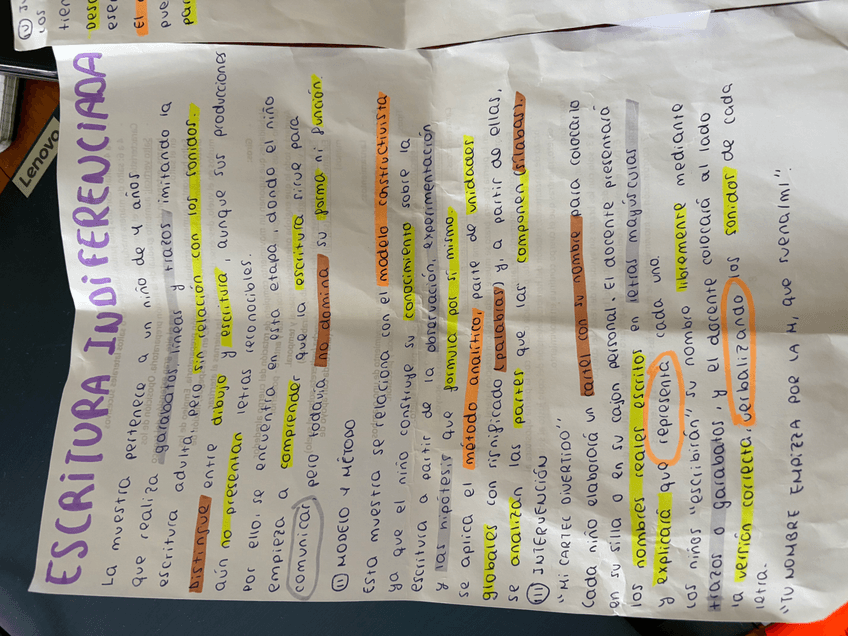 ESCRITURA INDIFERENCIADA
La muestra pertenece a un niño de 4 años
que realiza garabatos, líneas y trazos imitando la
escritura adulta, pero sin relación con los sonidos.
Distingue entre dibujo y escritura, aunque sus producciones
aún no presentan letras reconocibles.
Por ello, se encuentra en esta etapa, donde el niño
empieza a comprender que la escritura sirve para
comunicar, pero todavía no domina su forma ni función.
(II) MODELO Y MÉTODO
Esta muestra se relaciona con el modelo constructivista
ya que el niño construye su conocimiento sobre la
escritura a partir de la observación, experimentación
y las hipótesis que formula por sí mismo.
se aplica el método analítico, parte de unidades
globales con significado (palabras) y, a partir de ellas,
se analizan las partes que las componen (sílabas).
(III) INTERVENCIÓN
"MI CARTEL DIVERTIDO"
Cada niño elaborará un cartel con su nombre para colocarlo
en su silla o en su cajón personal. El docente presentará
los nombres reales escritos en letras mayúsculas
y explicará que representa cada una.
Los niños "escribirán" su nombre libremente mediante
trazos o garabatos, y el docente colocará al lado
la versión correcta, verbalizando los sonidos de cada
letra.
"TU NOMBRE EMPIEZA POR LA M, que suena /m/".
Lenovo